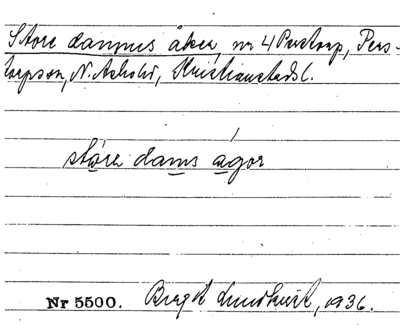 Store dammes åker, nr 4 Perstorp, Pers-
torpssn, N. Åsbohd, Kristianstads l.
stǡra dams ågor
Nr 5500. Birgit Lundkvist, 1936.